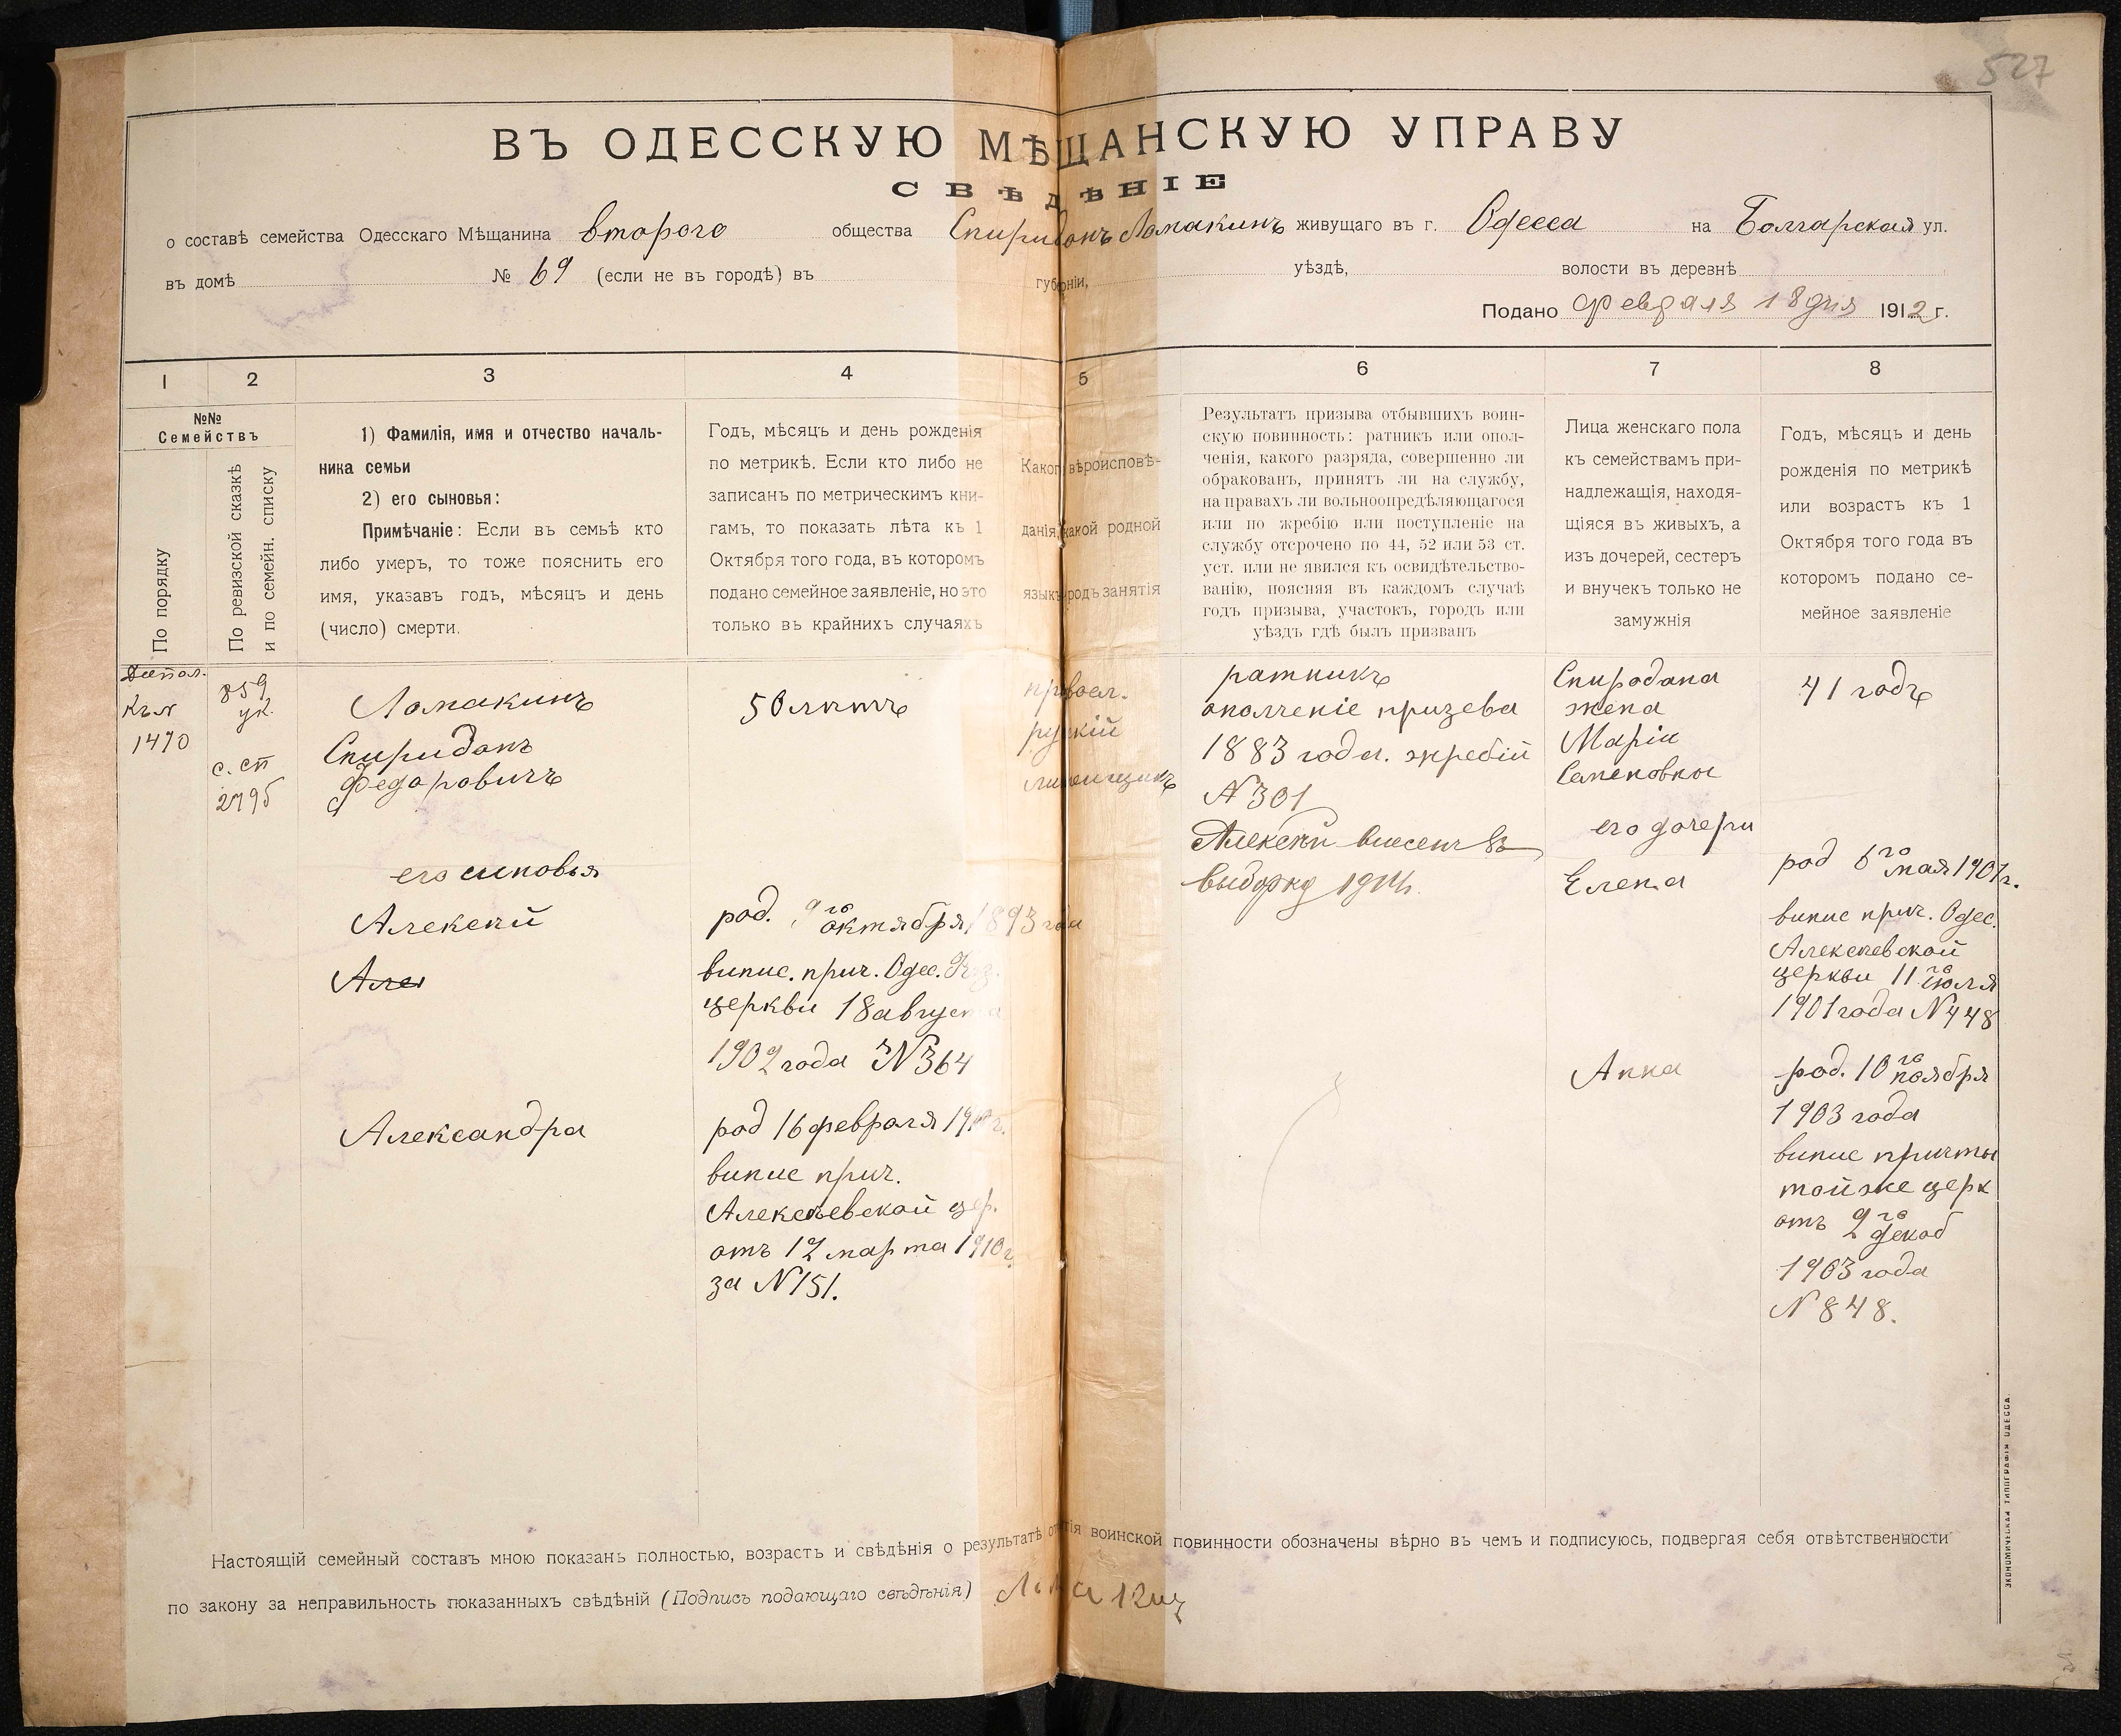 527
ВЪ ОДЕССКУЮ МѢЩАНСКУЮ УПРАВУ
СВѢДѢНІЕ
о составѣ семейства Одесскаго Мѣщанина второго общества Спиридонъ Ломакинъ живущаго въ г. Одесса на Болгарская ул.
въ домѣ № 69 (если не въ городѣ) въ губерніи, уѣздѣ, волости въ деревнѣ
Подано Февраля 18 дня 1912 г.
1 2 3 4 5 6 7 8
№№
Семействъ
По порядку
По ревизской сказкѣ
и по семейн. списку
1) Фамилія, имя и отчество началь-
ника семьи
2) его сыновья:
Примѣчаніе: Если въ семьѣ кто
либо умеръ, то тоже пояснить его
имя, указавъ годъ, мѣсяцъ и день
(число) смерти.
Годъ, мѣсяцъ и день рожденія
по метрикѣ. Если кто либо не
записанъ по метрическимъ кни-
гамъ, то показать лѣта къ 1
Октября того года, въ которомъ
подано семейное заявленіе, но это
только въ крайнихъ случаяхъ
Какого вѣроисповѣ-
данія, какой родной
языкъ родъ занятія
Результатъ призыва отбывшихъ воин-
скую повинность: ратникъ или опол-
ченія, какого разряда, совершенно ли
обракованъ, принятъ ли на службу,
на правахъ ли вольноопредѣляющагося
или по жребію или поступленіе на
службу отсрочено по 44, 52 или 53 ст.
уст. или не явился къ освидѣтельство-
ванію, поясняя въ каждомъ случаѣ
годъ призыва, участокъ, городъ или
уѣздъ гдѣ былъ призванъ
Лица женскаго пола
къ семействамъ при-
надлежащія, находя-
щіяся въ живыхъ, а
изъ дочерей, сестеръ
и внучекъ только не
замужнія
Годъ, мѣсяцъ и день
рожденія по метрикѣ
или возрастъ къ 1
Октября того года въ
которомъ подано се-
мейное заявленіе
Допол.
къ №
1470
859
ук.
с. сп
2795
Ломакинъ
Спиридонъ
Федоровичъ
его сыновья
Алексѣй
Але
Александра
50 лѣтъ
род. 9го октября 1893 года
випис. прич. Одес.
церкви 18 августа
1902 года № 364
род 16 февраля 1910 г.
випис прич.
Алексѣевской цер.
отъ 12 марта 1910 г.
за № 151.
правосл.
рускій
ратникъ
ополченіе призева
1883 года. жребій
№ 301
Алексѣй внесенъ въ
выборку 1914.
Спиродона
жена
Марія
Семеновны
его дочери
Елена
Анна
41 годъ
род 6го мая 1901 г.
випис прич. Одес.
Алексѣевской
церкви 11го июля
1901 года № 448
род. 10го ноября
1903 года
випис причты
тойже церк
отъ 2го декаб
1903 года
№ 848.
Настоящій семейный составъ мною показанъ полностью, возрастъ и свѣдѣнія о результатѣ отбытія воинской повинности обозначены вѣрно въ чемъ и подписуюсь, подвергая себя отвѣтственности
по закону за неправильность показанныхъ свѣдѣній (Подпись подающаго свѣдѣнія) Ломакинъ
ЭКОНОМИЧЕСКАЯ ТИПОГРАФІЯ ОДЕССА.